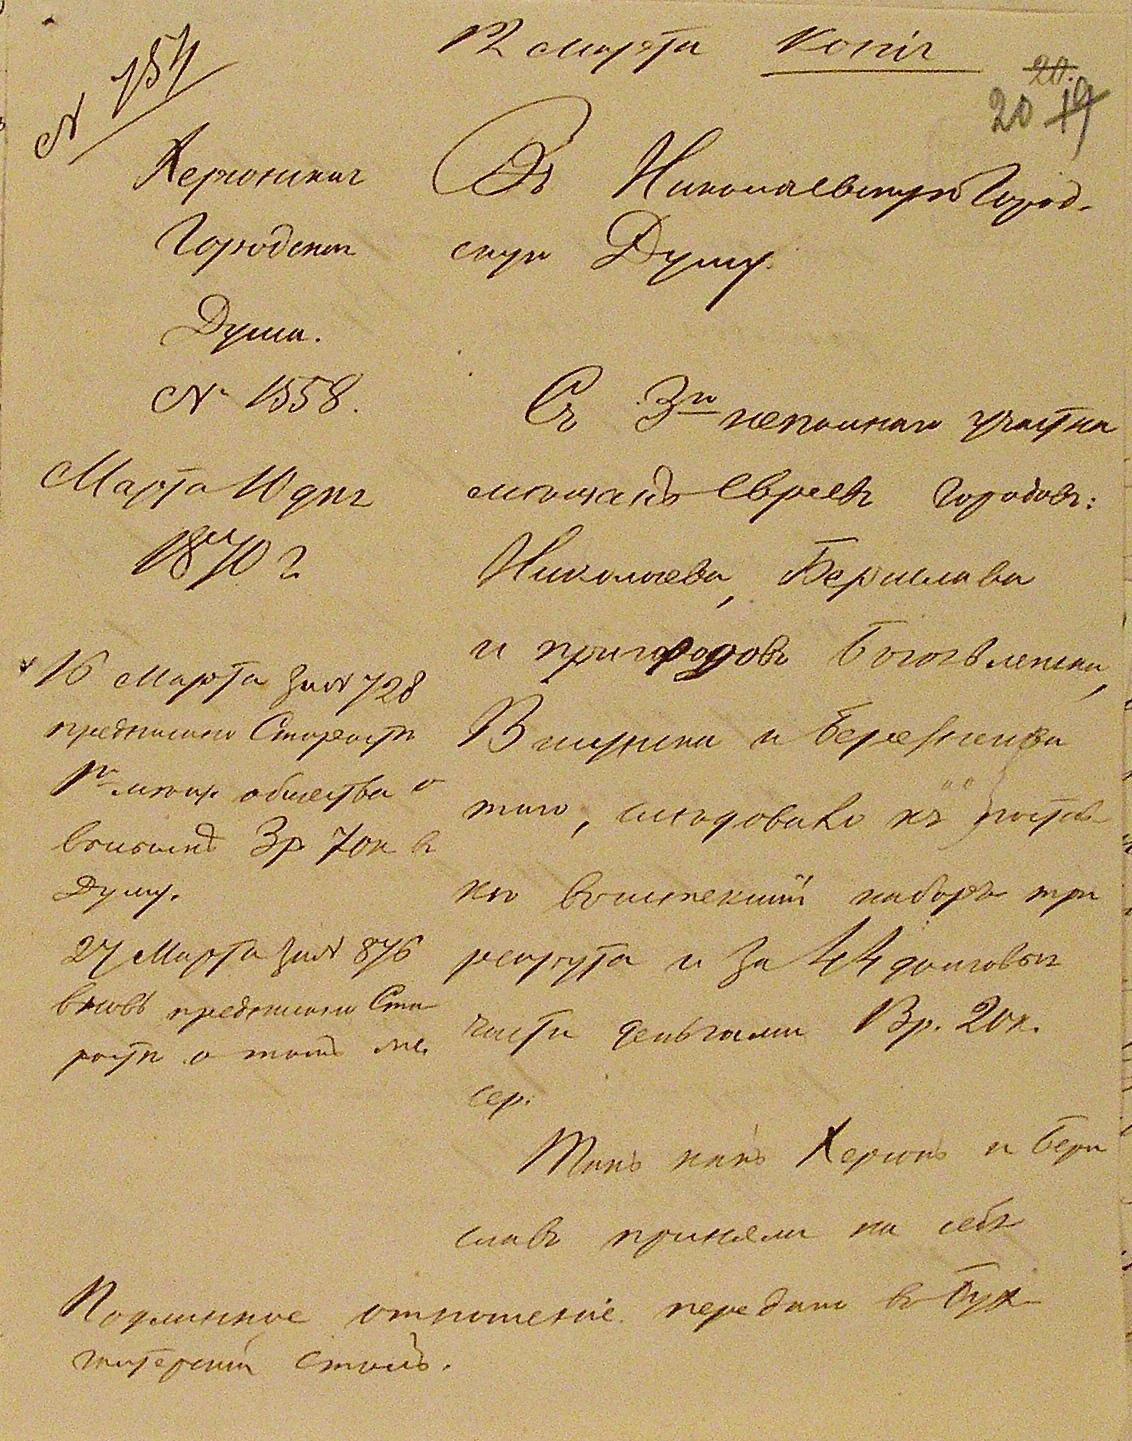 12 Марта Копія
20.
20 19
№ 754
Херсонская
Городская
Дума.
№ 1558.
Марта 10 дня
1870 г.
Въ Николаевскую Город-
скую Думу.
Съ 3го неполнаго участка
мѣщанъ Евреевъ городовъ:
Николаева, Берислава
и пригородовъ Богоявленска,
Висунска и Березнегова
таго, слѣдовало къ поста
кѣ въ настоящій наборъ три
рекрута и за 44 долговыя
части деньгами 13р. 20к.
сер.
Такъ какъ Херсонъ и Бери
славъ приняли на себя
16 Марта за № 728
предписано Старостѣ
1го мѣщ. общества о
взысканіи 3р 70к въ
Думу.
27 Марта за № 876
вновь предписано Ста
ростѣ о томъ же.
Подлинное отношеніе передано въ Бух
галтерскій столъ.